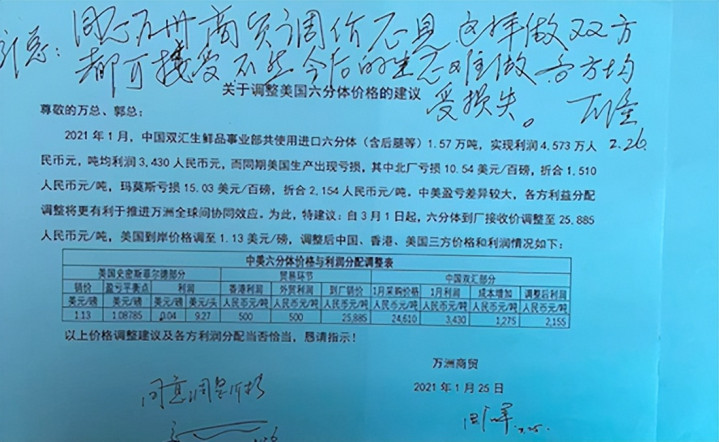 同意万洲商贸调价意见 这样做双方
都可接受 不然今后的生意难做 各方均
受损失。 万隆
2.26.
关于调整美国六分体价格的建议
尊敬的万总、郭总：
2021年1月，中国双汇生鲜品事业部共使用进口六分体（含后腿等）1.57万吨，实现利润4,573万人
民币元，吨均利润3,430人民币元，而同期美国生产出现亏损，其中北厂亏损10.54美元/百磅，折合1,510
人民币元/吨，玛莫斯亏损15.03美元/百磅，折合2,154人民币元/吨，中美盈亏差异较大，各方利益分配
调整将更有利于推进万洲全球间协同效应。为此，特建议：自3月1日起，六分体到厂接收价调整至25,885
人民币元/吨，美国到岸价格调至1.13美元/磅，调整后中国、香港、美国三方价格和利润情况如下：
中美六分体价格与利润分配调整表
美国史密斯菲尔德部分 贸易环节 中国双汇部分
销价 盈亏平衡点 利润 香港利润 外贸利润 到厂销价 1月采购价格 1月利润 成本增加 调整后利润
美元/磅 美元/磅 美元/磅 美元/头 人民币元/吨 人民币元/吨 人民币元/吨 人民币元/吨 人民币元/吨 人民币元/吨 人民币元/吨
1.13 1.08785 0.04 9.27 500 500 25,885 24,610 3,430 1,275 2,155
以上价格调整建议及各方利润分配当否恰当，恳请指示！
万洲商贸
2021年1月25日
同意调整价格